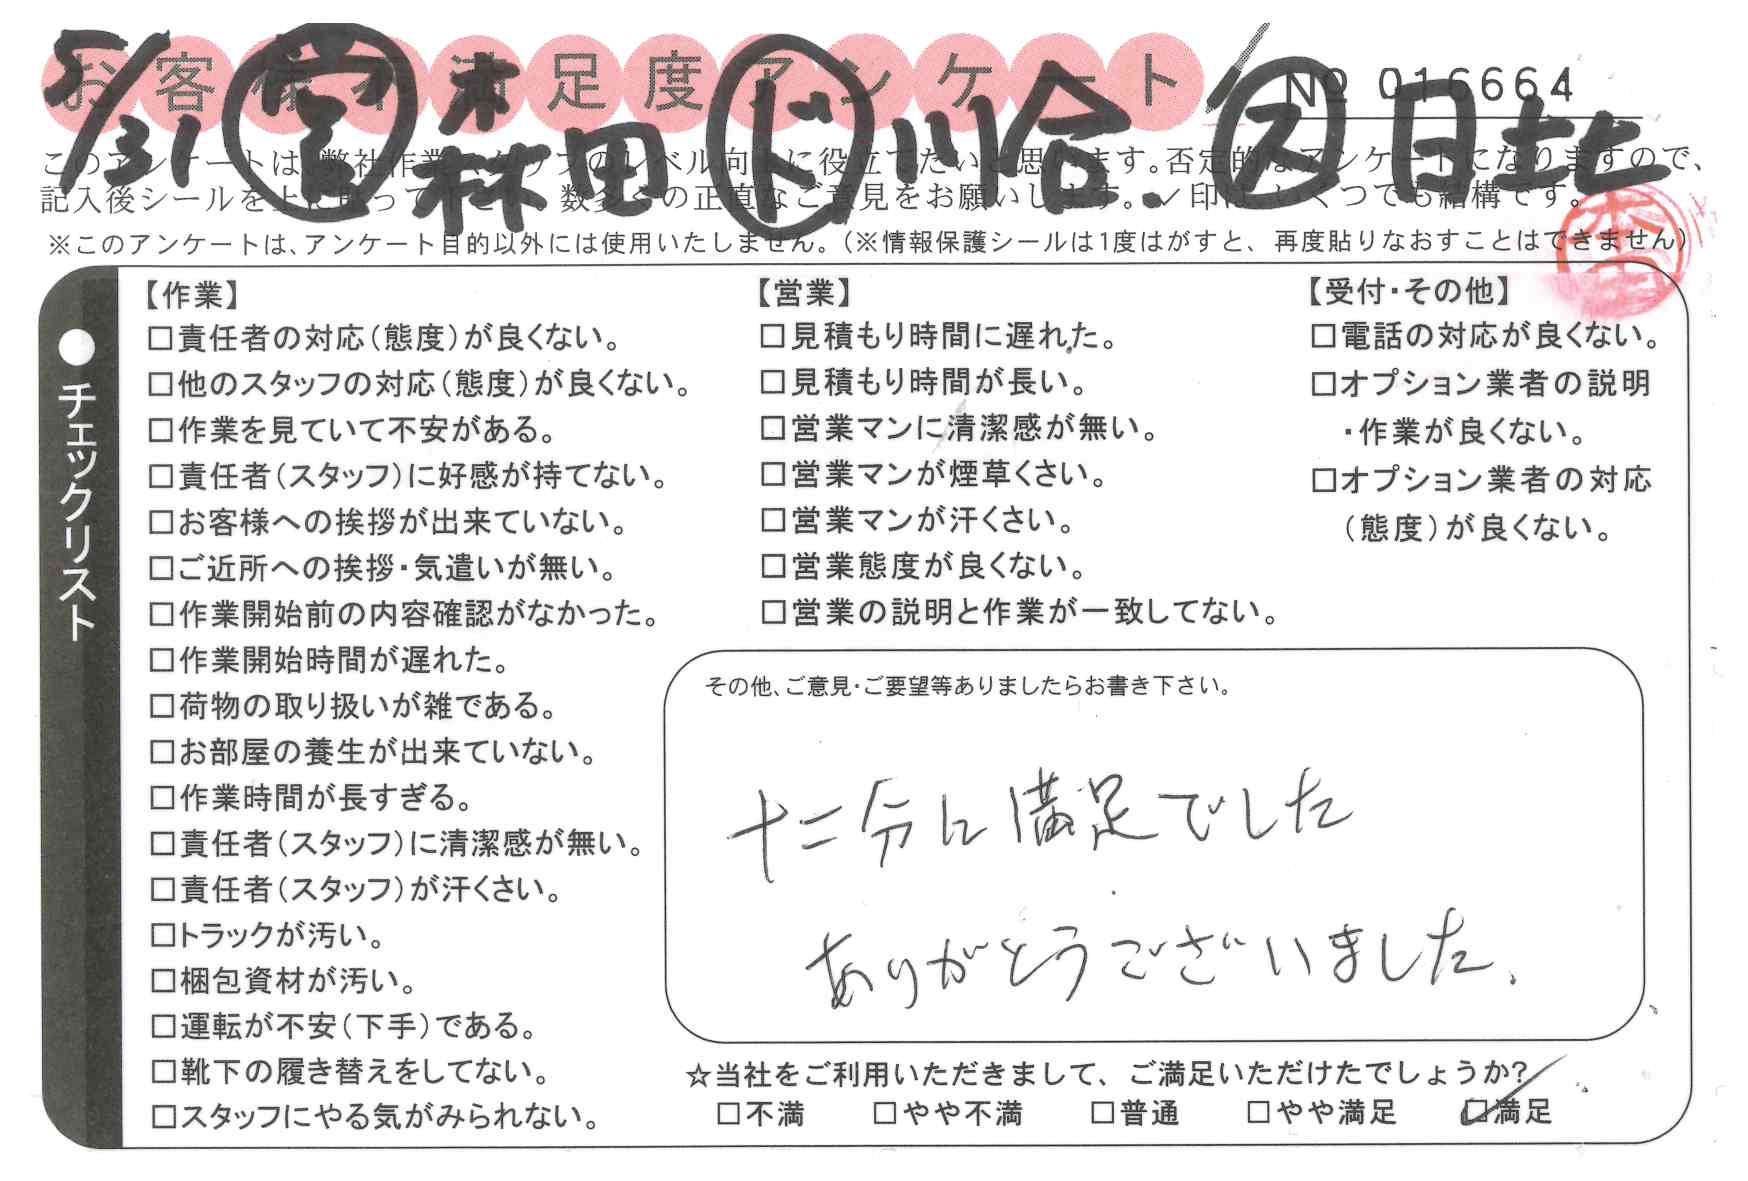 お客様不満足度アンケート
№ 016664
5/31 営 林田 ド 川合. ス 日
このアンケートは、弊社作業スタッフのレベル向上に役立てたいと思います。否定的なアンケートになりますので、
記入後シールを上に貼って下さい。数多くの正直なご意見をお願いします。✓印は、いくつでも結構です。
※このアンケートは、アンケート目的以外には使用いたしません。（※情報保護シールは1度はがすと、再度貼りなおすことはできません）
●チェックリスト
【作業】
□責任者の対応（態度）が良くない。
□他のスタッフの対応（態度）が良くない。
□作業を見ていて不安がある。
□責任者（スタッフ）に好感が持てない。
□お客様への挨拶が出来ていない。
□ご近所への挨拶・気遣いが無い。
□作業開始前の内容確認がなかった。
□作業開始時間が遅れた。
□荷物の取り扱いが雑である。
□お部屋の養生が出来ていない。
□作業時間が長すぎる。
□責任者（スタッフ）に清潔感が無い。
□責任者（スタッフ）が汗くさい。
□トラックが汚い。
□梱包資材が汚い。
□運転が不安（下手）である。
□靴下の履き替えをしてない。
□スタッフにやる気がみられない。
【営業】
□見積もり時間に遅れた。
□見積もり時間が長い。
□営業マンに清潔感が無い。
□営業マンが煙草くさい。
□営業マンが汗くさい。
□営業態度が良くない。
□営業の説明と作業が一致してない。
【受付・その他】
□電話の対応が良くない。
□オプション業者の説明
・作業が良くない。
□オプション業者の対応
（態度）が良くない。
その他、ご意見・ご要望等ありましたらお書き下さい。
十二分に満足でした
ありがとうございました.
☆当社をご利用いただきまして、ご満足いただけたでしょうか?
□不満 □やや不満 □普通 □やや満足 ☑満足